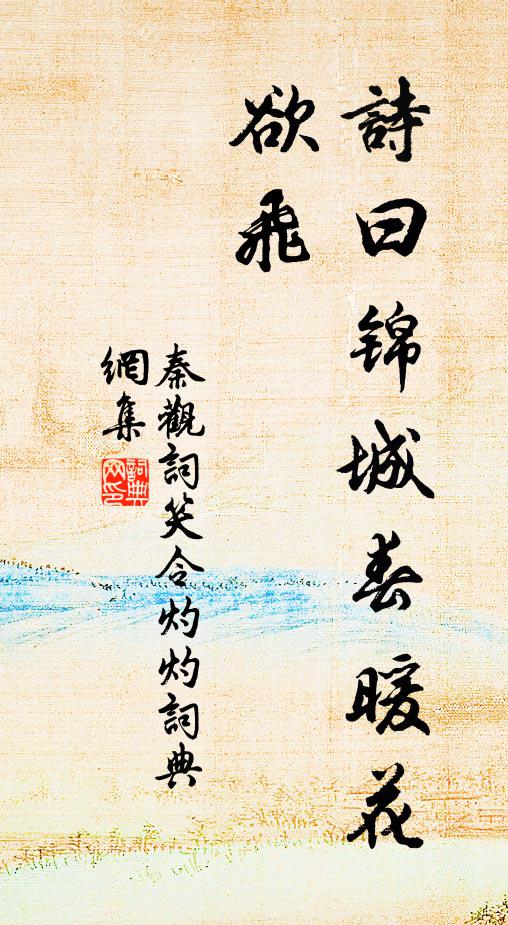 詩曰锦城春暖花
欲飛
秦觀詞笑合灼灼詞典
網集
詞典
网印